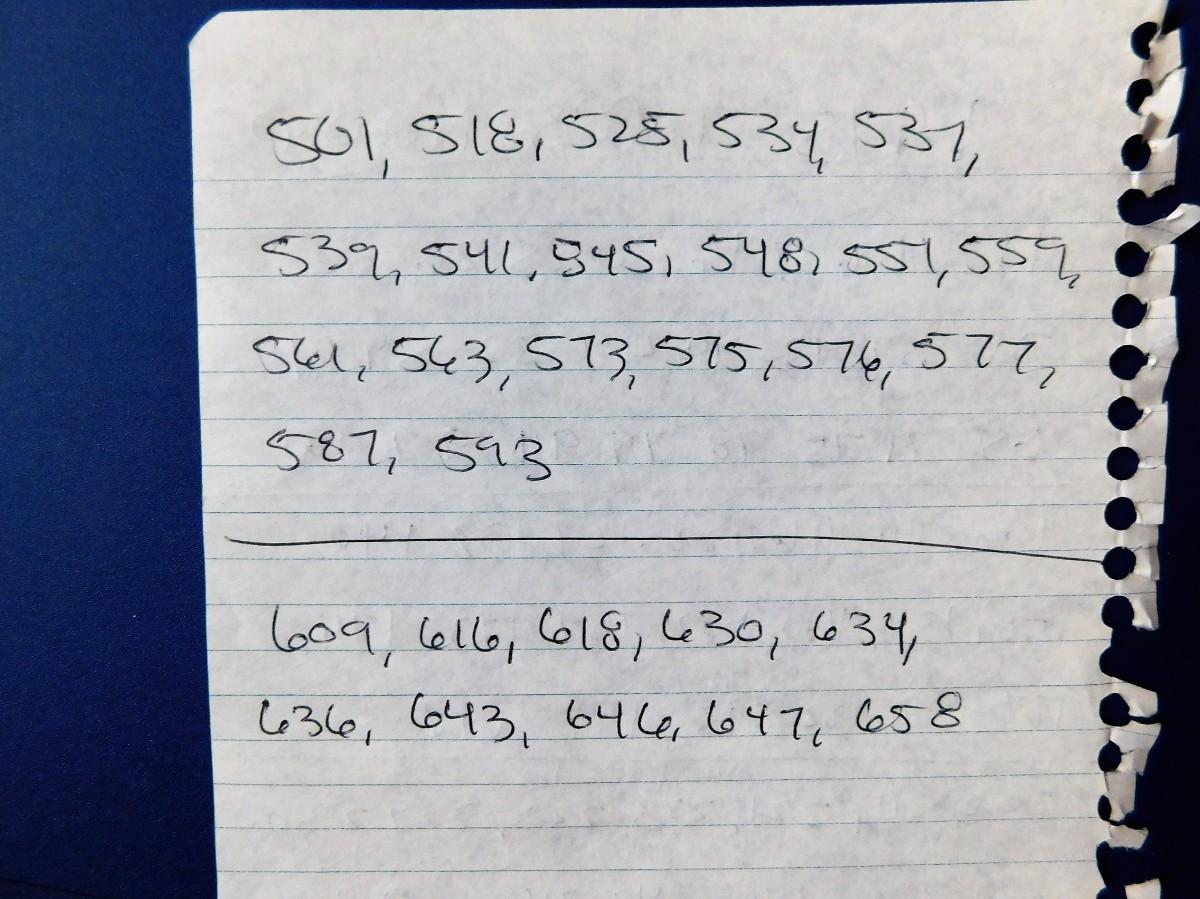 501, 518, 525, 534, 537,
539, 541, 545, 548, 557, 559,
561, 563, 573, 575, 576, 577,
587, 593
609, 616, 618, 630, 634,
636, 643, 646, 647, 658